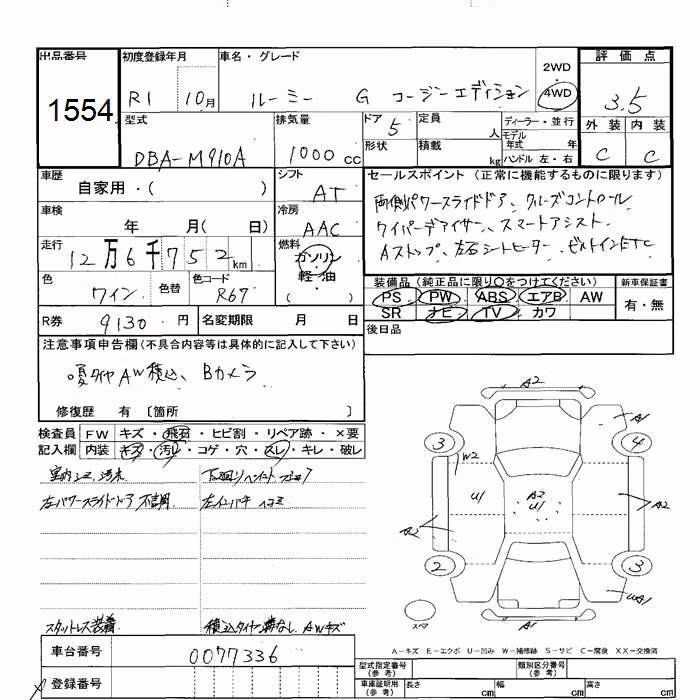 出品番号 初度登録年月 車名・グレード 2WD 評価点
1554 R1 10月 ルーミー G コージーエディション 4WD 3.5
型式 排気量 ドア 5 定員 人 ディーラー・並行 外装 内装
DBA-M910A 1000cc 形状 積載 kg モデル年式 年 ハンドル 左・右 C C
車歴 自家用・( ) シフト AT セールスポイント (正常に機能するものに限ります)
両側パワースライドドア、クルーズコントロール
車検 年 月( 日) 冷房 AAC ワイパーデアイサー、スマートアシスト
走行 12万6千752km 燃料 ガソリン 軽・油 ( ) Aストップ、左右シートヒーター、ビルトインETC
色 ワイン 色替 色コード R67 装備品(純正品に限り○をつけてください) 新車保証書
PS PW ABS エアB AW 有・無
SR ナビ TV カワ
R券 9130円 名変期限 月 日 後日品
注意事項申告欄(不具合内容等は具体的に記入して下さい)
夏タイヤAW積込、Bカメラ
修復歴 有 〔箇所 〕
検査員 FW キズ・飛石・ヒビ割・リペア跡・×要
記入欄 内装 キズ・汚レ・コゲ・穴・スレ・キレ・破レ
A2
A1
3 4
W2
U1 A2 U1 A2
A2
2 3
UA1
スペア A1
室内シミ、汚れ
左パワースライドドア不調
スタットレス装着 積込タイヤ溝なし AWキズ
A-キズ E-エクボ U-凹み W-補修跡 S-サビ C-腐食 XX-交換済
車台番号 0077336
登録番号
型式指定番号(参考) 類別区分番号(参考)
車庫証明用(参考) 長さ cm 幅 cm 高さ cm